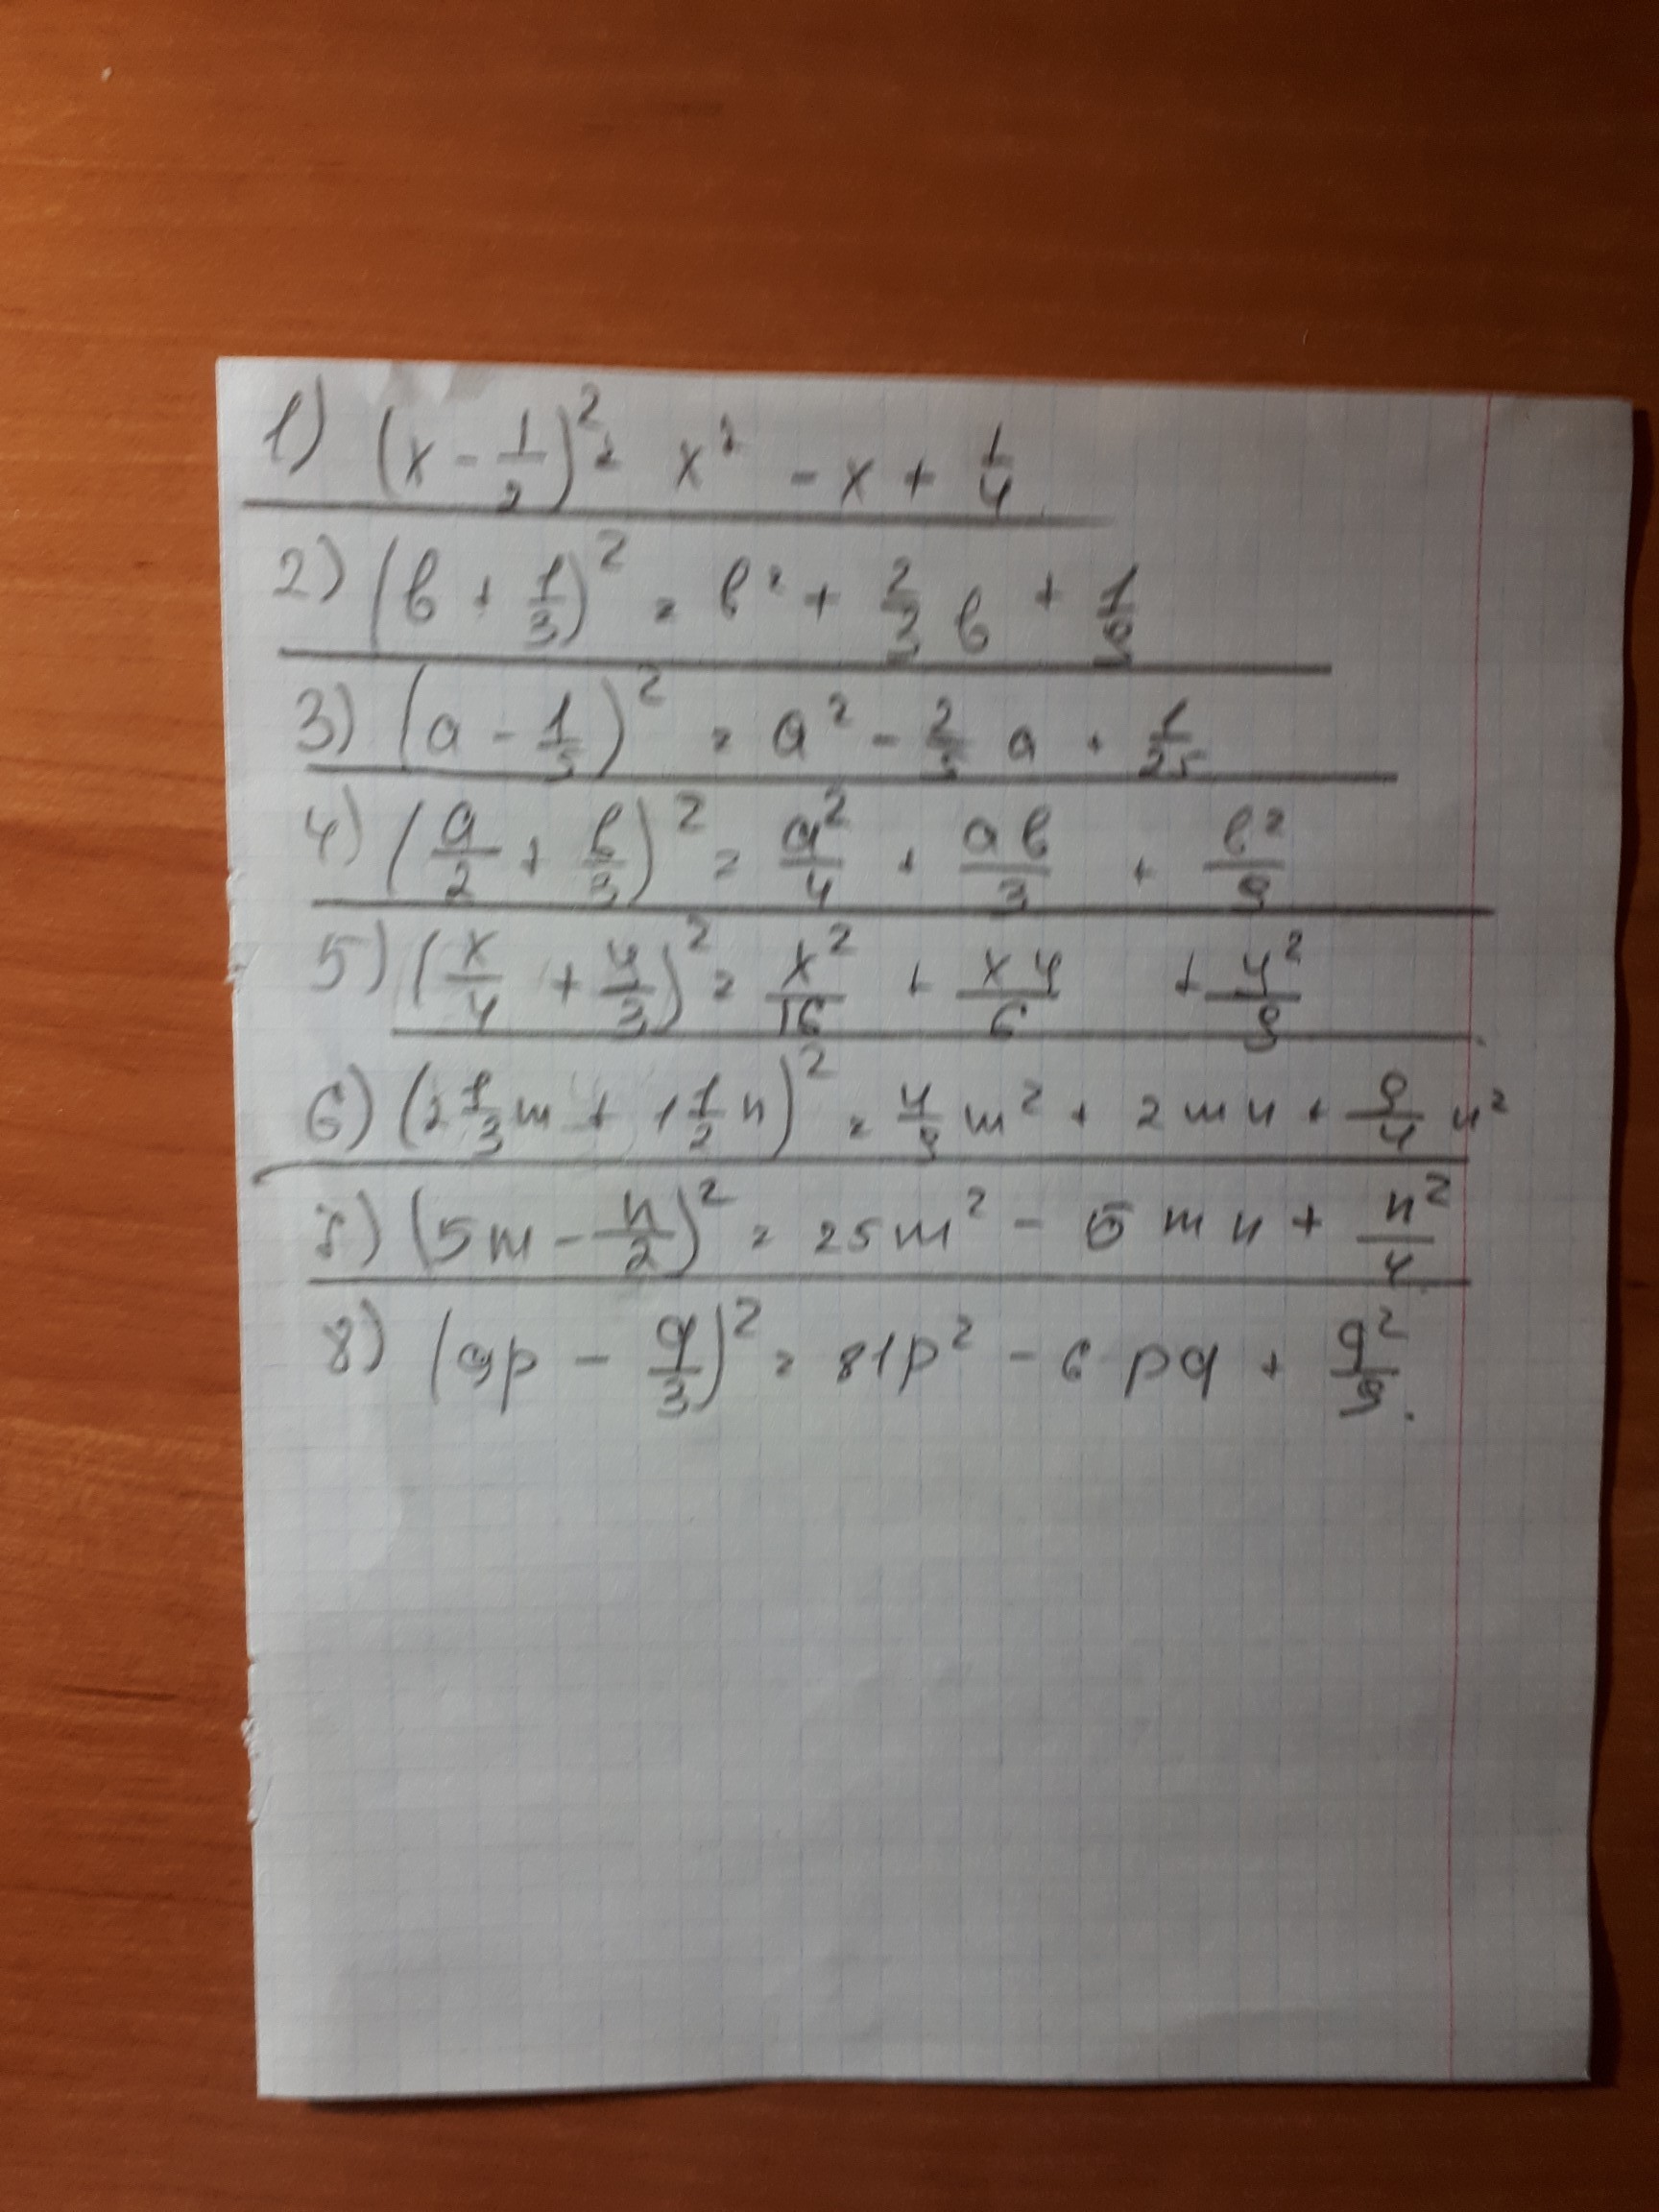 1) (x - 1/2)² = x² - x + 1/4
2) (b + 1/3)² = b² + 2/3 b + 1/9
3) (a - 1/5)² = a² - 2/5 a + 1/25
4) (a/2 + b/3)² = a²/4 + ab/3 + b²/9
5) (x/4 + y/3)² = x²/16 + xy/6 + y²/9
6) (2 1/3 m + 1 1/2 n)² = 4/9 m² + 2mn + 9/4 n²
7) (5m - n/2)² = 25m² - 5mn + n²/4
8) (9p - q/3)² = 81p² - 6pq + q²/9.